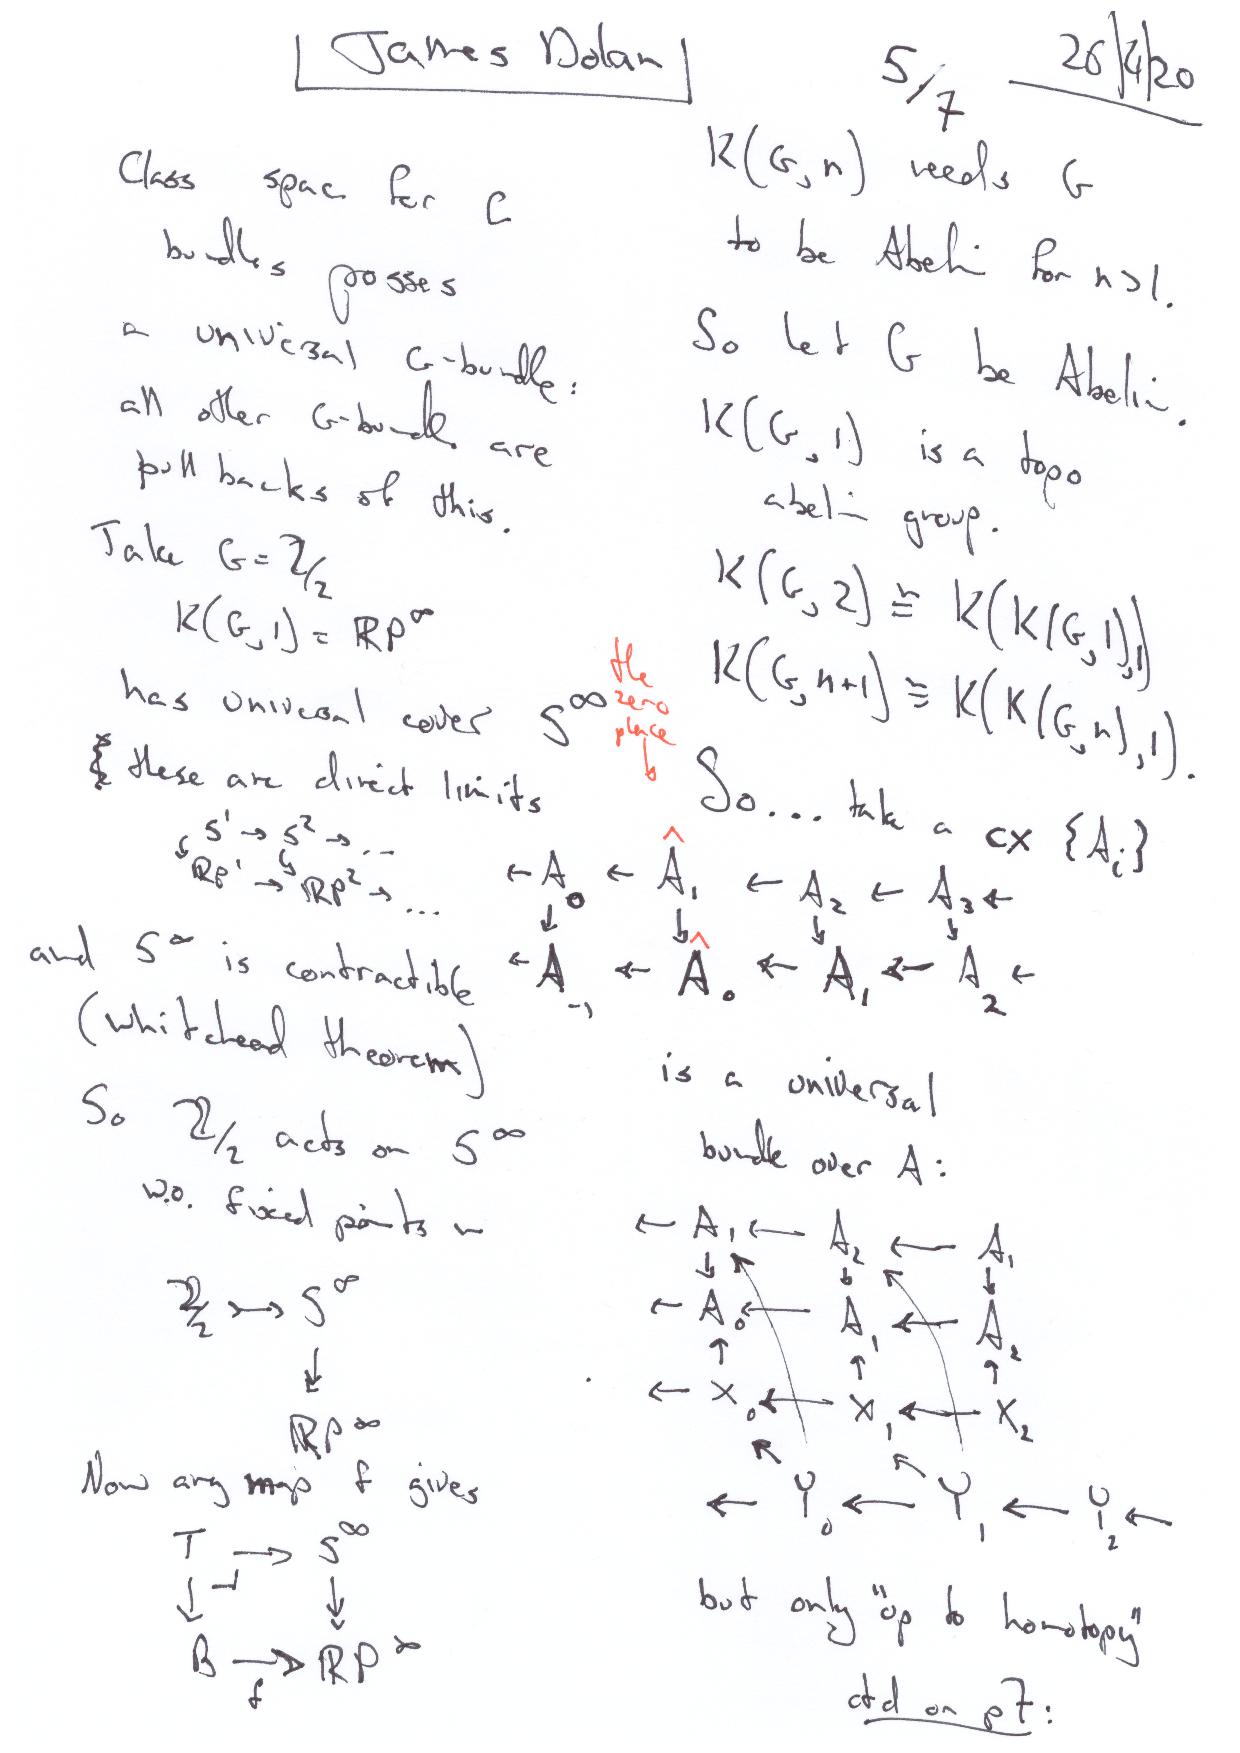 James Dolan
5/7
26/4/20
Class spac for C
bundles posses
a universal G-bundle:
all other G-bundle are
pull backs of this.
Take G = ℤ/2
K(G,1) = ℝP^∞
has universal cover S^∞
& these are direct limits
S^1 → S^2 → ...
↓ ↓
ℝP^1 → ℝP^2 → ...
and S^∞ is contractible
(Whitehead theorem)
So ℤ/2 acts on S^∞
w.o. fixed points
ℤ/2 ↣ S^∞
↓
ℝP^∞
Now any map f gives
T → S^∞
↓ ↓
B → ℝP^∞
f
K(G,n) needs G
to be Abeli for n>1.
So let G be Abelin.
K(G,1) is a topo
abeli group.
K(G,2) ≅ K(K(G,1),1)
K(G,n+1) ≅ K(K(G,n),1).
the
zero
place
↓
So... take a cx {A_i}
← A_0 ← Â_1 ← A_2 ← A_3 ←
↓ ↓ ↓ ↓
← A_-1 ← Â_0 ← A_1 ← A_2 ←
is a universal
bundle over A:
← A_1 ← A_2 ← A_1
↓ ↓ ↓
← A_0 ← A_1 ← A_2
↑ ↑ ↑
← X_0 ← X_1 ← X_2
← Y_0 ← Y_1 ← Y_2 ←
but only "up to homotopy"
ctd on p7: